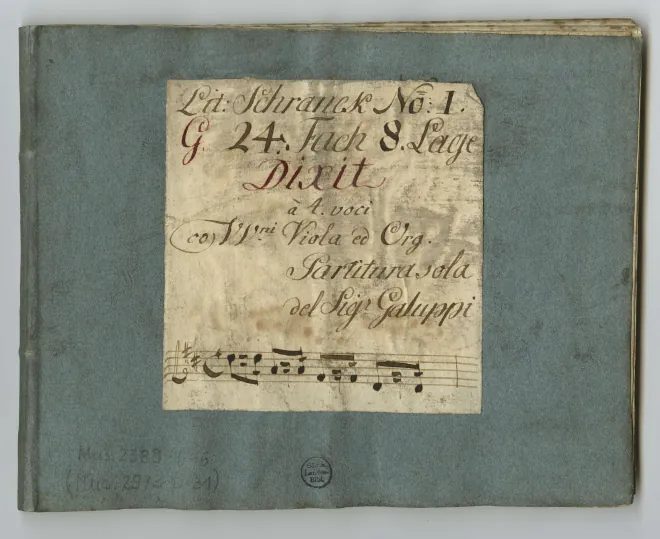 Lit: Schranck No: 1.
G. 24. Fach 8. Lage
Dixit
à 4. voci
co) VV.ni Viola ed Org.
Partitura sola
del Sigr Galuppi
Mus. 2389
(Mus.
Landes-
Bibl